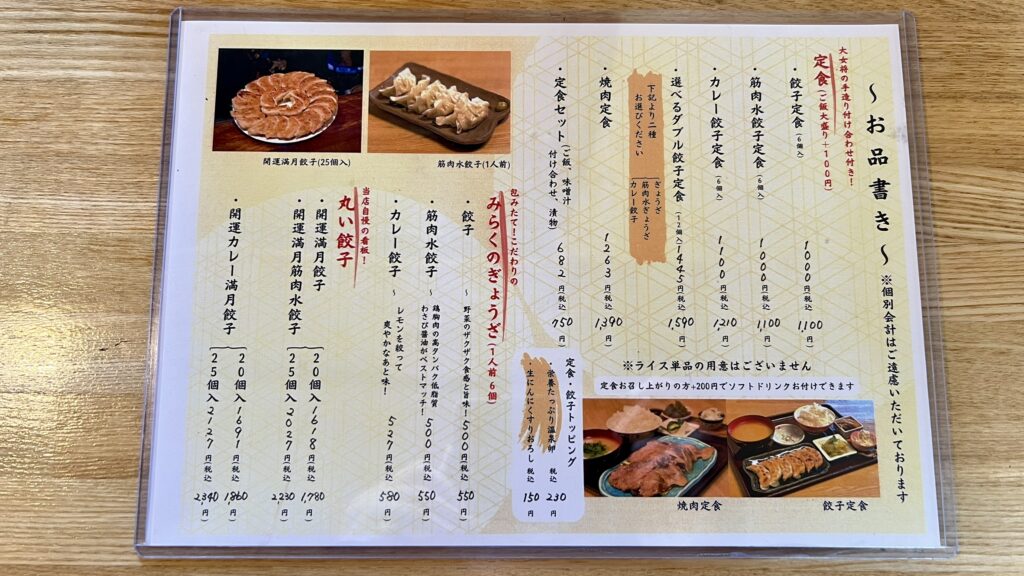 ～お品書き～
※個別会計はご遠慮いただいております
大女将の手造り付け合わせ付き！
定食(ご飯大盛り+100円)
・餃子定食(6個入) 1000円(税込1,100円)
・筋肉水餃子定食(6個入) 1000円(税込1,100円)
・カレー餃子定食(6個入) 1100円(税込1,210円)
・選べるダブル餃子定食(12個入)1445円(税込1,590円)
下記より二種
お選びください
ぎょうざ
筋肉水ぎょうざ
カレー餃子
・焼肉定食 1263円(税込1,390円)
・定食セット(ご飯、味噌汁
付け合わせ、漬物) 682円(税込750円)
※ライス単品の用意はございません
定食お召し上がりの方+200円でソフトドリンクお付けできます
焼肉定食
餃子定食
定食・餃子トッピング
・栄養たっぷり温泉卵 税込230円
・生にんにくすりおろし 税込150円
開運満月餃子(25個入)
筋肉水餃子(1人前)
包みたて！こだわりの
みらくのぎょうざ(1人前 6個)
・餃子 ～ 野菜のザクザク食感と旨味！500円(税込550円)
・筋肉水餃子 ～ 鶏胸肉の高タンパク低脂質
わさび醤油がベストマッチ！500円(税込550円)
・カレー餃子 ～ レモンを絞って
爽やかなあと味！ 527円(税込580円)
当店自慢の看板！
丸い餃子
・開運満月餃子
・開運満月筋肉水餃子
20個入1618円(税込1,780円)
25個入2027円(税込2,230円)
・開運カレー満月餃子
20個入1691円(税込1,860円)
25個入2127円(税込2,340円)